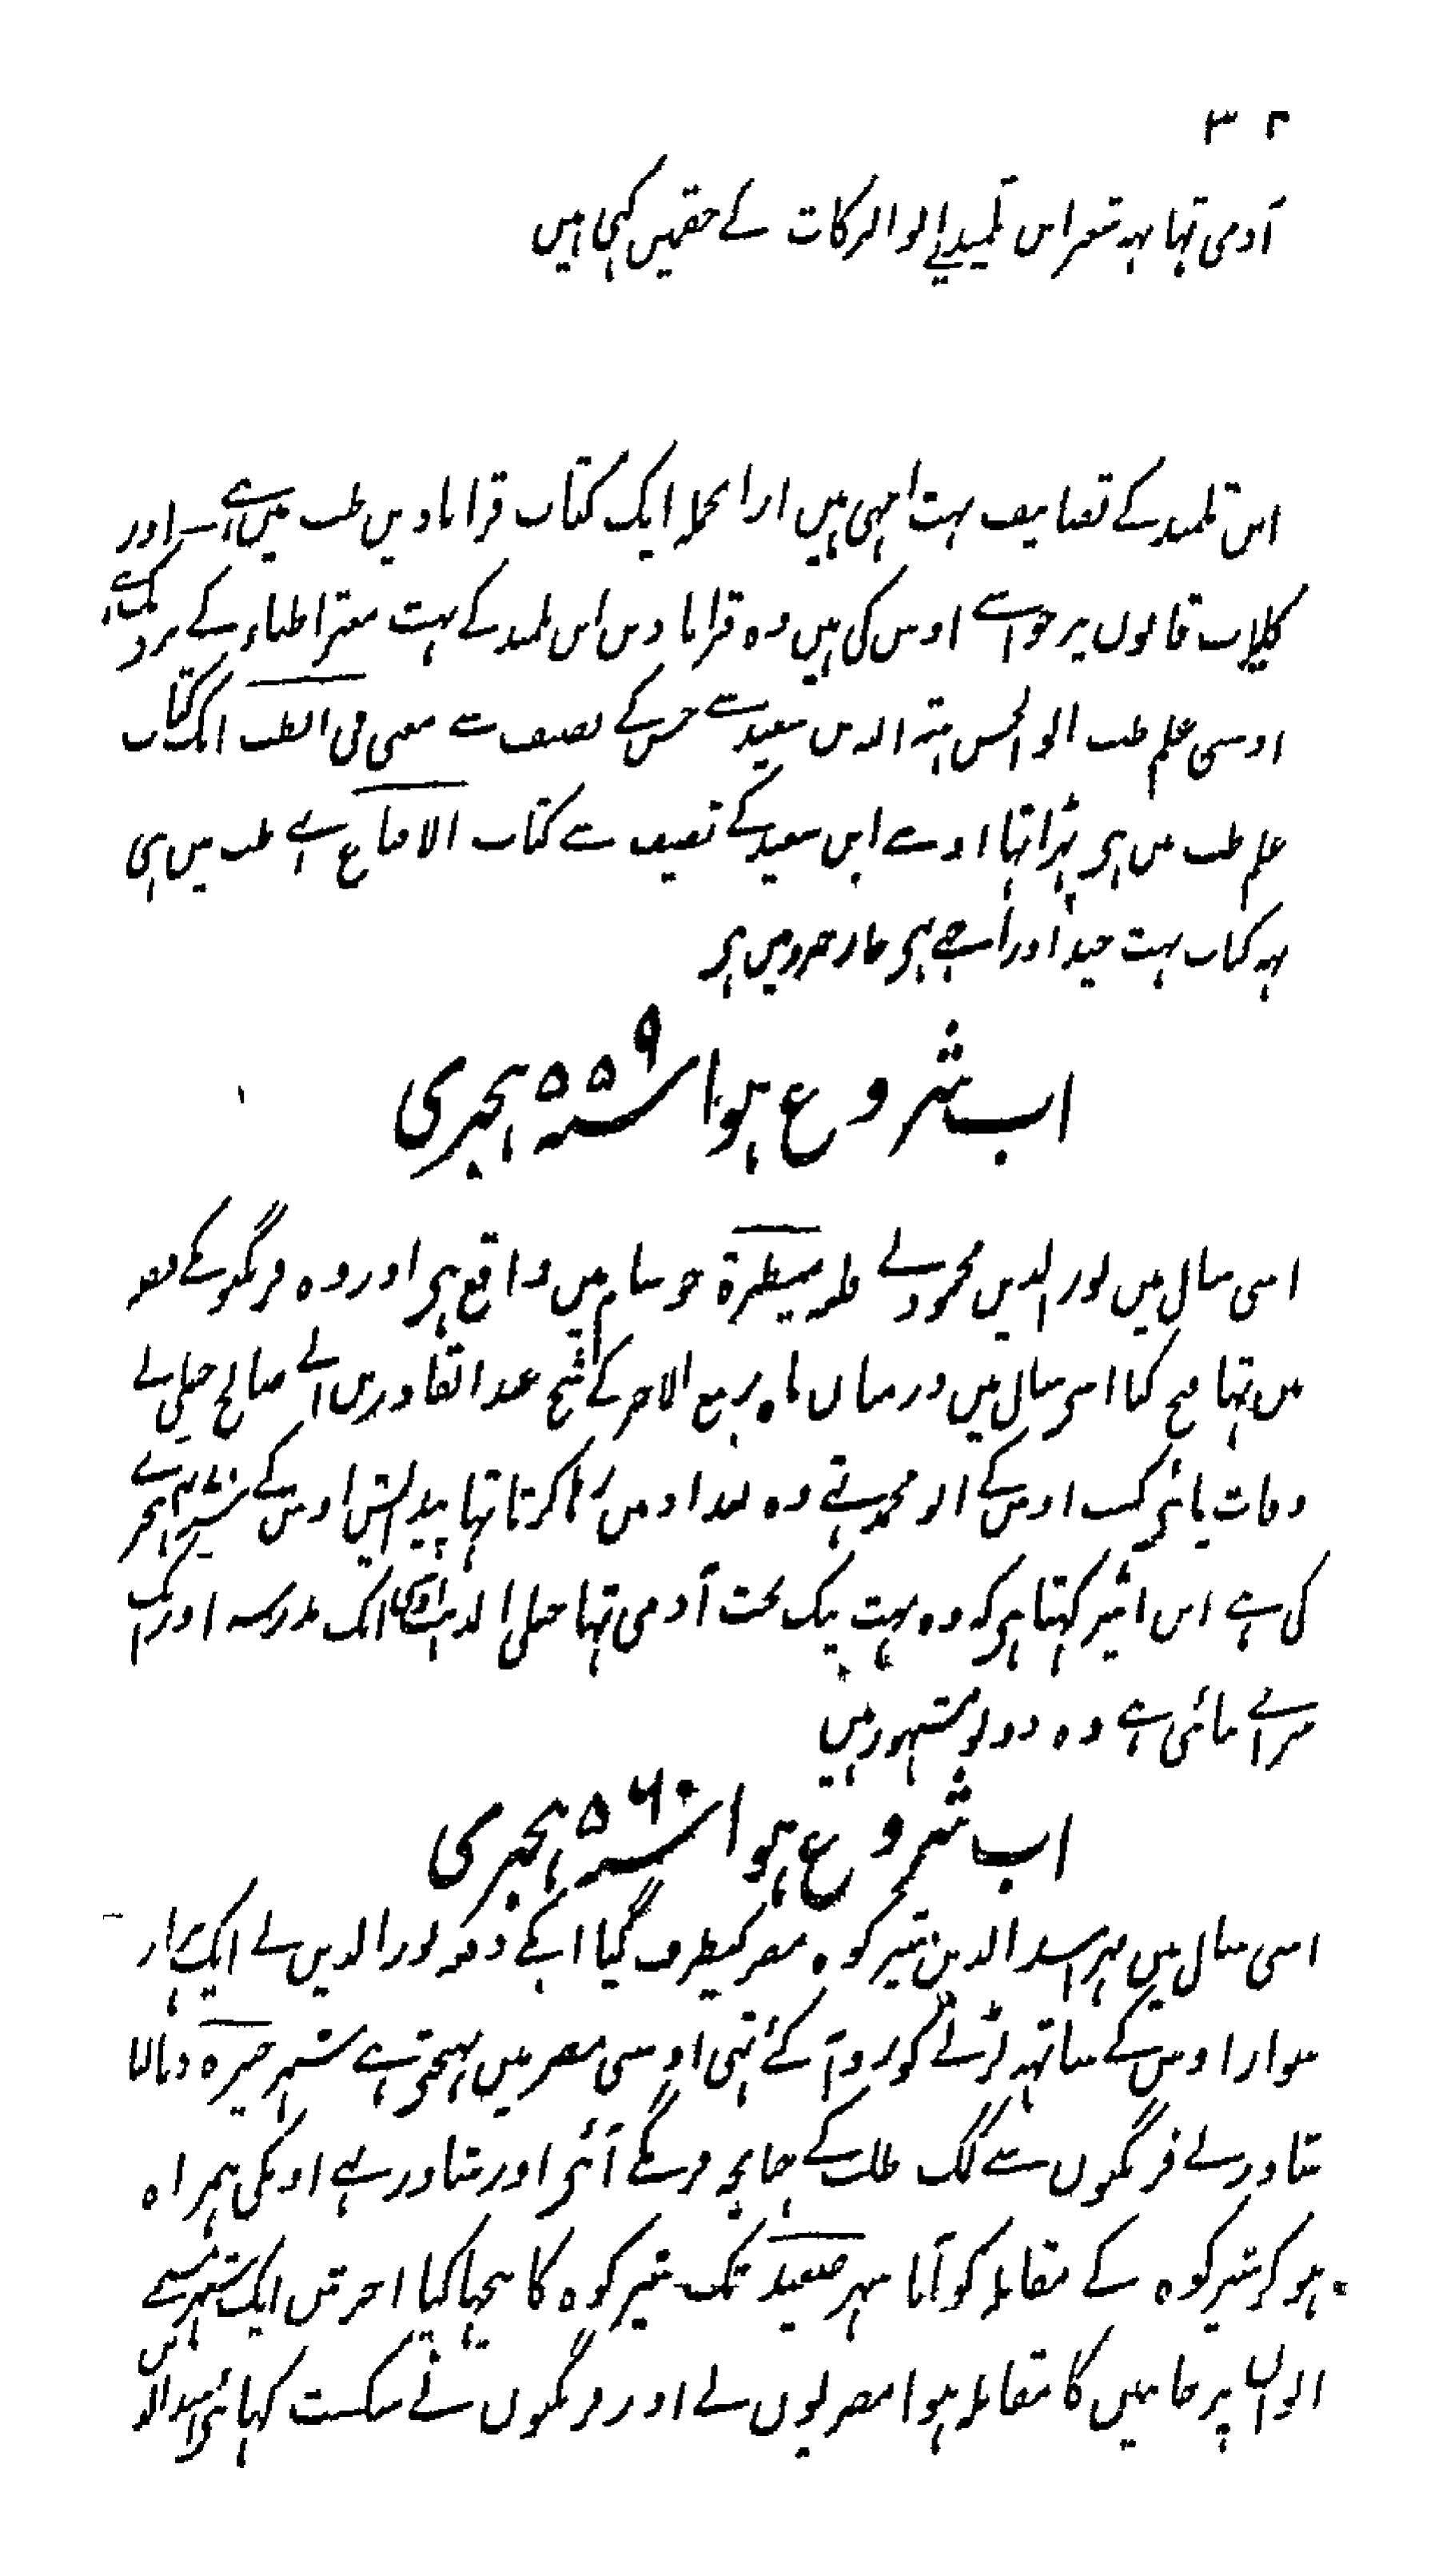 ۳۲
آدمی تہا یہہ شعر اس تلمیذ نے ابو البرکات کے حقمیں کہی ہیں
اس تلمیذ کے تصانیف بہت اچہی ہیں ازا نجملہ ایک کتاب قرابادین طب میں ہے اور
کلیات قانون پر حواشے اوس کی ہیں وہ قرابادین اس تلمیذ کے بہت معتبر اطباء کے نزدیک ہے
اوسی علم طب ابو الحسن ہبۃ الله بن سعید سے جس کے تصنیف سے مغنی فی الطب ایک کتاب
علم طب میں ہی پڑہا تہا اوسے ابن سعید کے تصنیف سے کتاب الاقناع ہے طب میں ہی
یہہ کتاب بہت جید اور اچہی ہی چار جزو میں ہی
اب شروع ہوا سنہ ۵۵۹ ہجری
اسی سال میں نور الدین محمود نے قلعہ منیطرۃ جو شام میں واقع ہی اور وہ فرنگیو کے قبضہ
میں تہا فتح کیا اسی سال میں درمیان ماہ ربیع الاخر کے شیخ عبد القادر بن ابے صالح جیلی نے
وفات پائی کنیت اوس کے ابو محمد تہے وہ بغداد میں رہا کرتا تہا پیدایش اوس کے سنہ ۴۷۰ ہجری
کی ہے ابن اثیر کہتا ہی کہ وہ بہت نیک بخت آدمی تہا حنبلی المذہب اوسکا ایک مدرسہ اور ایک
سرائے بنائی ہے وہ دونو مشہور ہیں
اب شروع ہوا سنہ ۵۶۰ ہجری
اسی سال میں پہر اسد الدین شیرکوہ مصر کیطرف گیا ابکے دفعہ نور الدین نے ایک ہزار
سوار اوس کے ساتہہ لڑنے کو روانہ کئے تہی اوسی مصر میں پہنچتے ہے شہر جیزہ دبا لیا
شاور نے فرنگیوں سے کمک طلب کے چنانچہ فرنگے آئی اور شاور بہے اونکی ہمراہ
ہو کر شیرکوہ کے مقابلہ کو آیا پہر صعید تک شیرکوہ کا پیچہا کیا اخرش ایک شہر مسمے
ابوان پر جانبین کا مقابلہ ہوا مصریوں نے اور فرنگیوں نے شکست کہائی اسد الدین